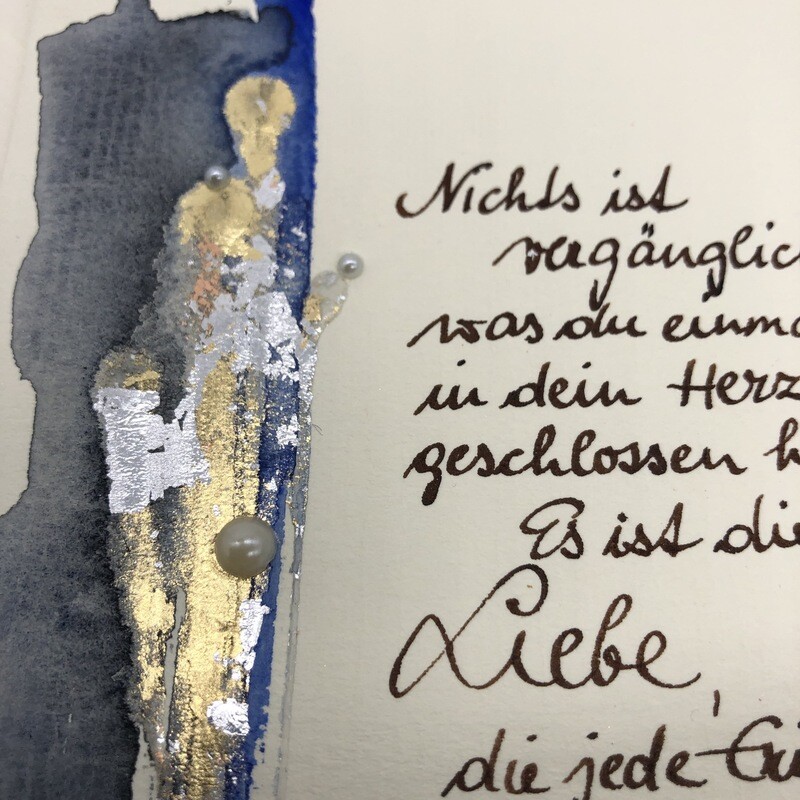 Nichts ist
vergänglic
was du einma
in dein Herz
geschlossen h
Es ist die
Liebe,
die jede